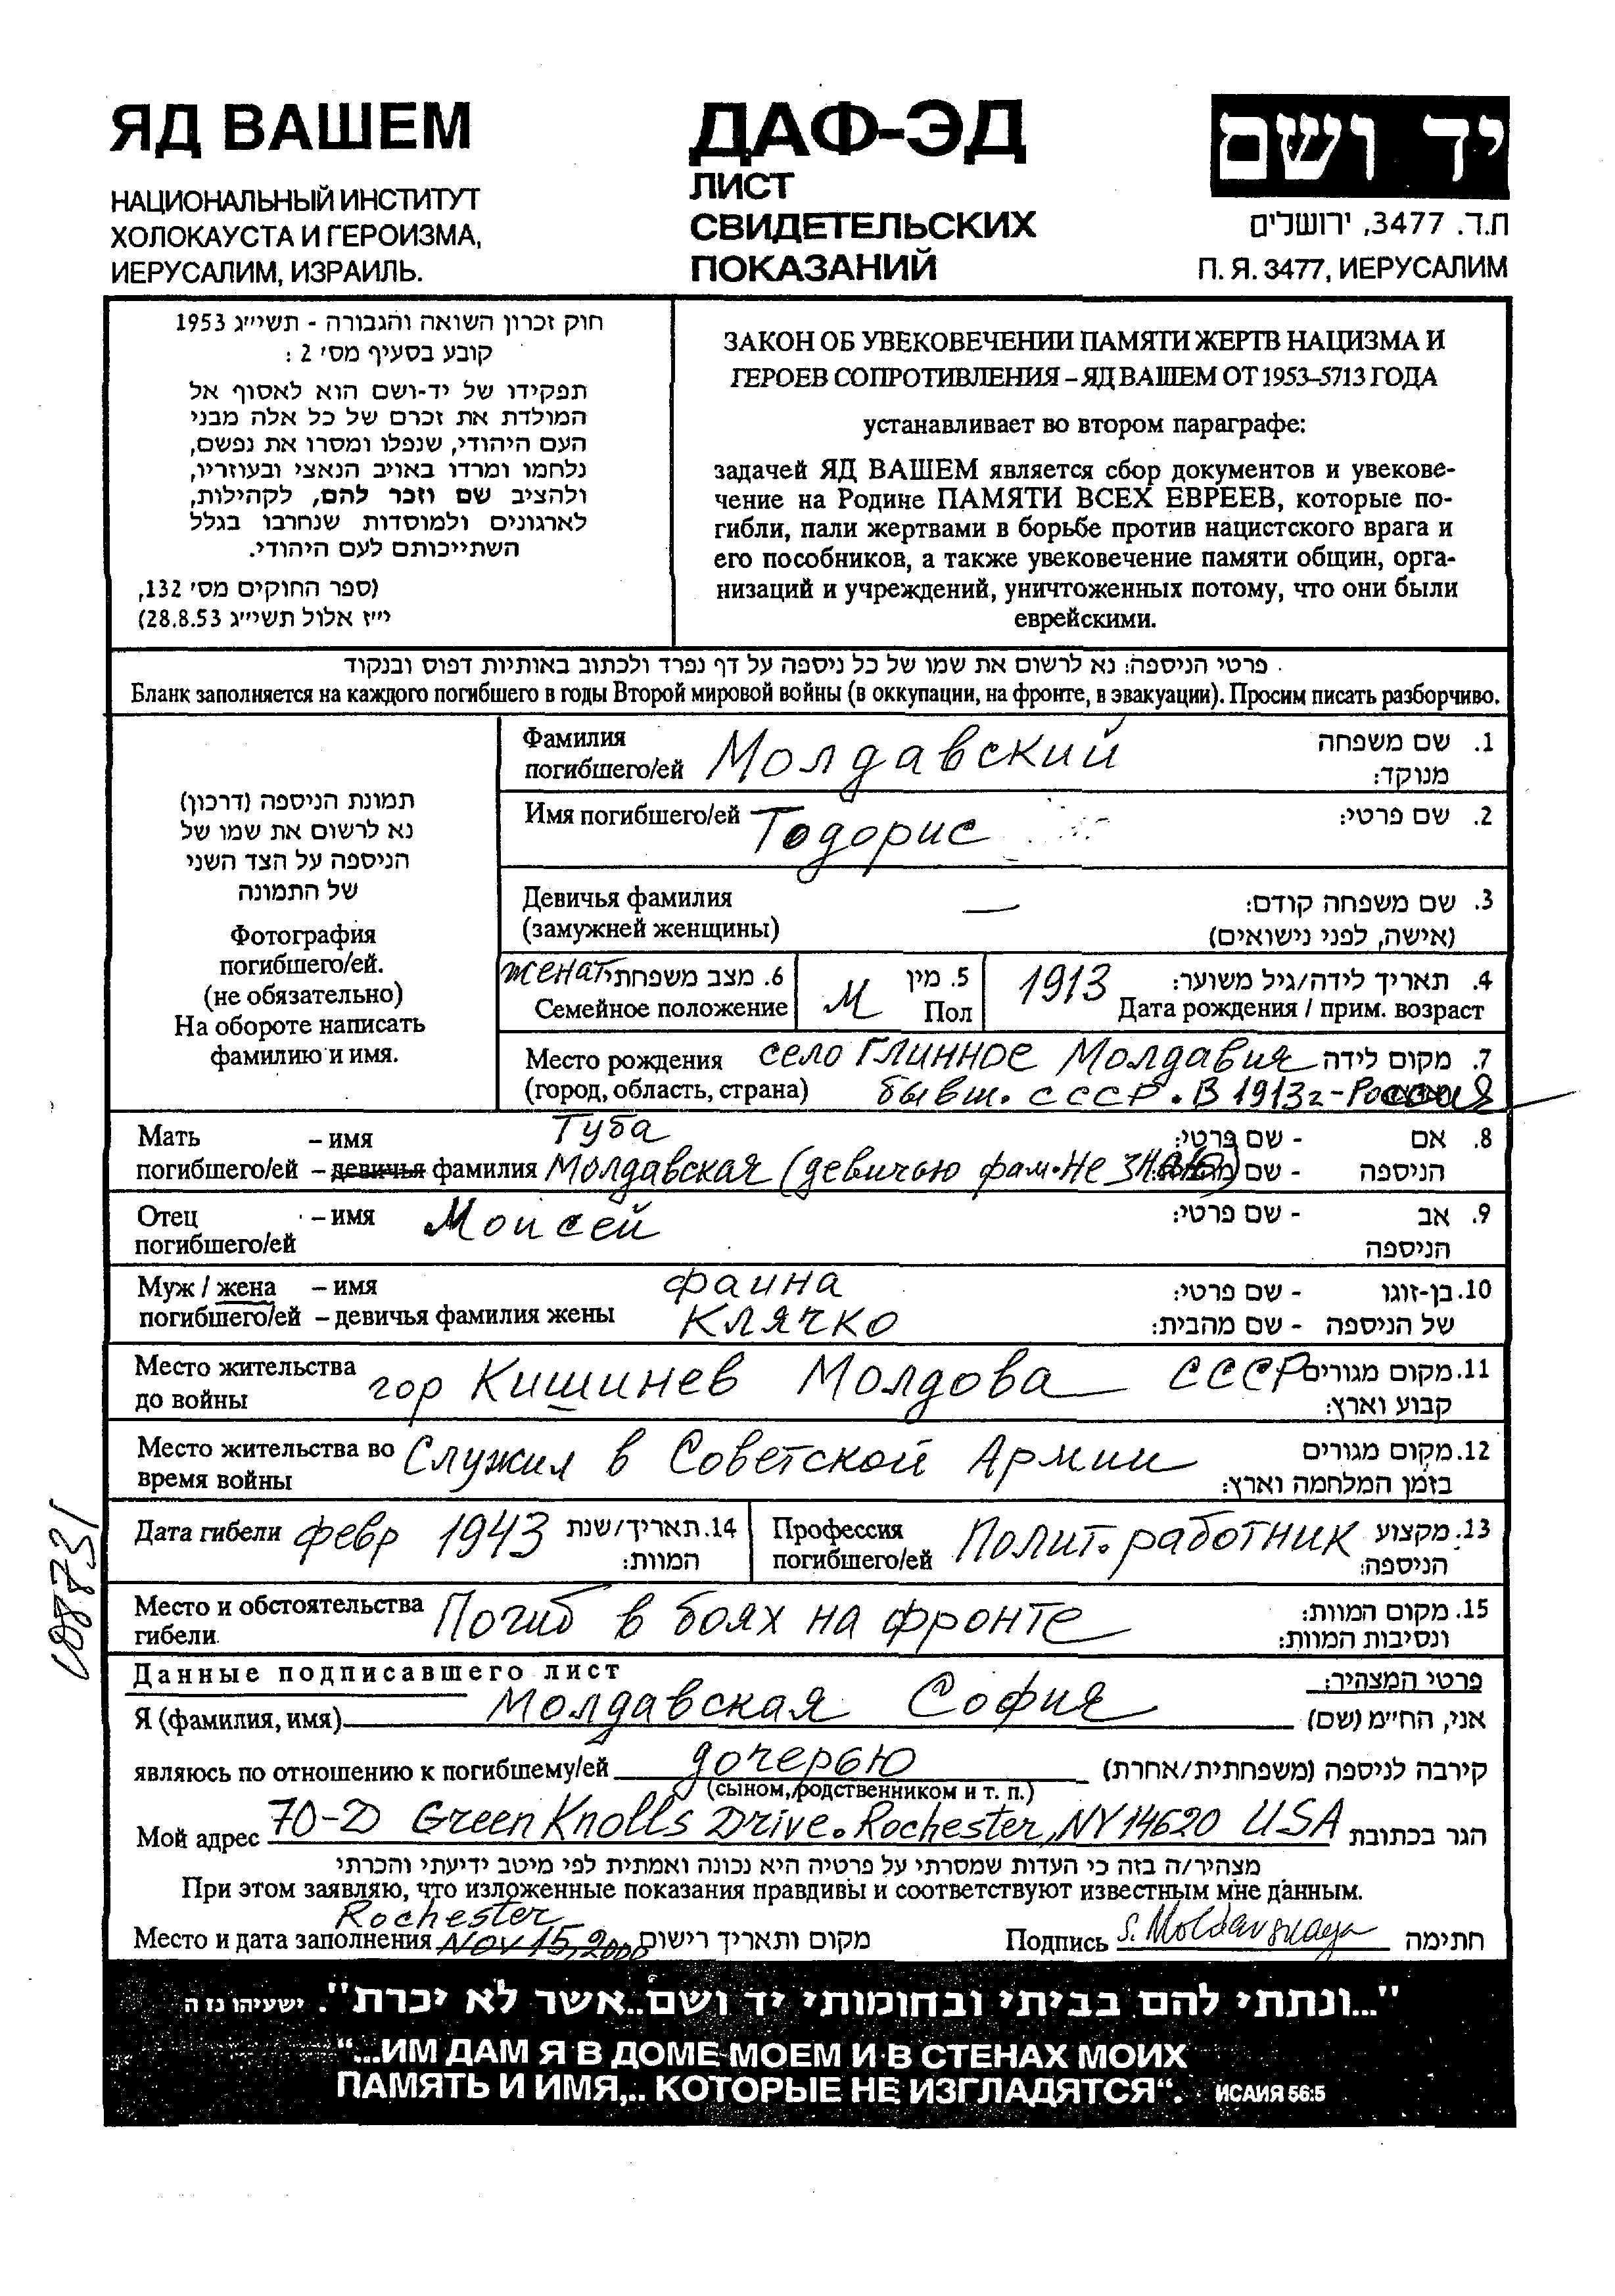 ЯД ВАШЕМ
НАЦИОНАЛЬНЫЙ ИНСТИТУТ
ХОЛОКАУСТА И ГЕРОИЗМА,
ИЕРУСАЛИМ, ИЗРАИЛЬ.
ДАФ-ЭД
ЛИСТ
СВИДЕТЕЛЬСКИХ
ПОКАЗАНИЙ
יד ושם
ת.ד. 3477, ירושלים
П. Я. 3477, ИЕРУСАЛИМ
חוק זכרון השואה והגבורה - תשי״ג 1953
קובע בסעיף מס׳ 2 :
תפקידו של יד-ושם הוא לאסוף אל
המולדת את זכרם של כל אלה מבני
העם היהודי, שנפלו ומסרו את נפשם,
נלחמו ומרדו באויב הנאצי ובעוזריו,
ולהציב שם וזכר להם, לקהילות,
לארגונים ולמוסדות שנחרבו בגלל
השתייכותם לעם היהודי.
(ספר החוקים מס׳ 132,
י״ז אלול תשי״ג 28.8.53)
ЗАКОН ОБ УВЕКОВЕЧЕНИИ ПАМЯТИ ЖЕРТВ НАЦИЗМА И
ГЕРОЕВ СОПРОТИВЛЕНИЯ – ЯД ВАШЕМ ОТ 1953–5713 ГОДА
устанавливает во втором параграфе:
задачей ЯД ВАШЕМ является сбор документов и увекове-
чение на Родине ПАМЯТИ ВСЕХ ЕВРЕЕВ, которые по-
гибли, пали жертвами в борьбе против нацистского врага и
его пособников, а также увековечение памяти общин, орга-
низаций и учреждений, уничтоженных потому, что они были
еврейскими.
פרטי הניספה: נא לרשום את שמו של כל ניספה על דף נפרד ולכתוב באותיות דפוס ובנקוד
Бланк заполняется на каждого погибшего в годы Второй мировой войны (в оккупации, на фронте, в эвакуации). Просим писать разборчиво.
תמונת הניספה (דרכון)
נא לרשום את שמו של
הניספה על הצד השני
של התמונה
Фотография
погибшего/ей.
(не обязательно)
На обороте написать
фамилию и имя.
Фамилия погибшего/ей Молдавский 1. שם משפחה מנוקד:
Имя погибшего/ей Тодорис 2. שם פרטי:
Девичья фамилия — 3. שם משפחה קודם:
(замужней женщины) (אישה, לפני נישואים)
женат 6. מצב משפחתי М 5. מין 1913 4. תאריך לידה/גיל משוער:
Семейное положение Пол Дата рождения / прим. возраст
Место рождения село Глинное Молдавия 7. מקום לידה
(город, область, страна) бывш. СССР. В 1913 г - Россия
Мать – имя Туба 8. אם - שם פרטי:
погибшего/ей – девичья фамилия Молдавская (девичью фам. не знаю) הניספה - שם
Отец – имя Моисей 9. אב - שם פרטי:
погибшего/ей הניספה
Муж / жена – имя Фаина 10. בן-זוגו - שם פרטי:
погибшего/ей – девичья фамилия жены Клячко של הניספה - שם מהבית:
Место жительства до войны гор Кишинев Молдова СССР 11. מקום מגורים קבוע וארץ:
Место жительства во время войны Служил в Советской Армии 12. מקום מגורים בזמן המלחמה וארץ:
Дата гибели февр 1943 14. תאריך/שנת המוות:
Профессия погибшего/ей Полит. работник 13. מקצוע הניספה:
Место и обстоятельства гибели Погиб в боях на фронте 15. מקום המוות: ונסיבות המוות:
Данные подписавшего лист פרטי המצהיר:
Я (фамилия, имя) Молдавская София אני, הח״מ (שם)
являюсь по отношению к погибшему/ей дочерью קירבה לניספה (משפחתית/אחרת)
(сыном, родственником и т. п.)
Мой адрес 70-D Green Knolls Drive. Rochester, NY 14620 USA הגר בכתובת
מצהיר/ה בזה כי העדות שמסרתי על פרטיה היא נכונה ואמתית לפי מיטב ידיעתי והכרתי
При этом заявляю, что изложенные показания правдивы и соответствуют известным мне данным.
Rochester
Место и дата заполнения Nov 15, 2000 מקום ותאריך רישום Подпись S. Moldavskaya חתימה
"...ונתתי להם בביתי ובחומותי יד ושם..אשר לא יכרת". ישעיהו נז ה
“...ИМ ДАМ Я В ДОМЕ МОЕМ И В СТЕНАХ МОИХ
ПАМЯТЬ И ИМЯ,.. КОТОРЫЕ НЕ ИЗГЛАДЯТСЯ“. ИСАИЯ 56:5